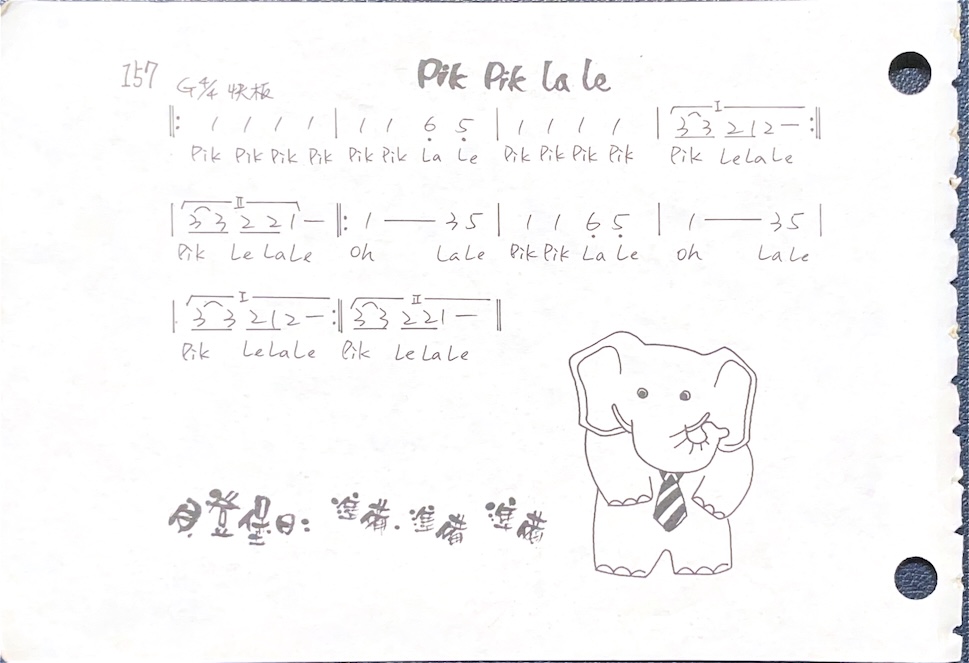 157 G 4/4 快板 Pik Pik La Le
‖: 1 1 1 1 | 1 1 6̣ 5̣ | 1 1 1 1 | I 3 3 2 1 2 — :‖
Pik Pik Pik Pik Pik Pik La Le Pik Pik Pik Pik Pik Le La Le
| II 3 3 2 2 1 — ‖: 1 —— 3 5 | 1 1 6̣ 5̣ | 1 —— 3 5 |
Pik Le La Le Oh La Le Pik Pik La Le Oh La Le
| I 3 3 2 1 2 — :‖ II 3 3 2 2 1 — ‖
Pik Le La Le Pik Le La Le
貝登堡日: 準備.準備 準備